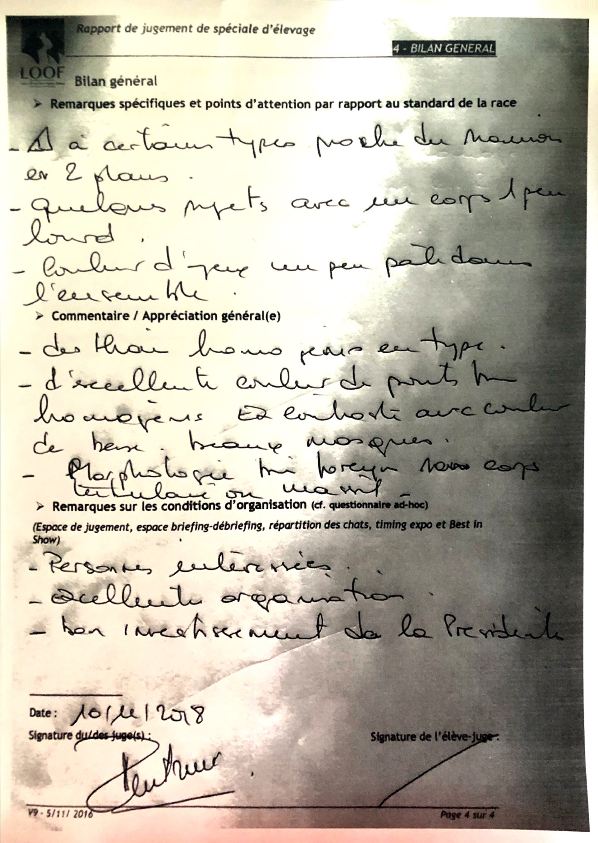 Rapport de jugement de spéciale d'élevage
4 - BILAN GENERAL
LOOF
Bilan général
➤ Remarques spécifiques et points d'attention par rapport au standard de la race
- ⚠ à certains types proche du
en 2 plans.
- quelques sujets avec un corps 1 peu
lourd.
- couleur d'yeux un peu pâle dans
l'ensemble.
➤ Commentaire / Appréciation général(e)
- des thaï homo gènes en type.
- d'excellente couleur de points
homogènes Et contraste avec couleur
de base. beaux masques.
- Morphologie foreign sans corps
tubulaire ou massif -
➤ Remarques sur les conditions d'organisation (cf. questionnaire ad-hoc)
(Espace de jugement, espace briefing-débriefing, répartition des chats, timing expo et Best in
Show)
- Personnes intéressées.
- excellente organisation.
- bon investissement de la Présidente
Date : 2018
Signature du/des juge(s) :
Signature de l'élève-juge :
V9 - 5/11/ 2016
Page 4 sur 4